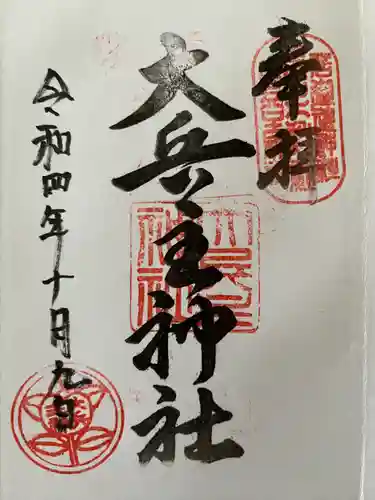 奉拝
大兵主神社
令和四年十月九日